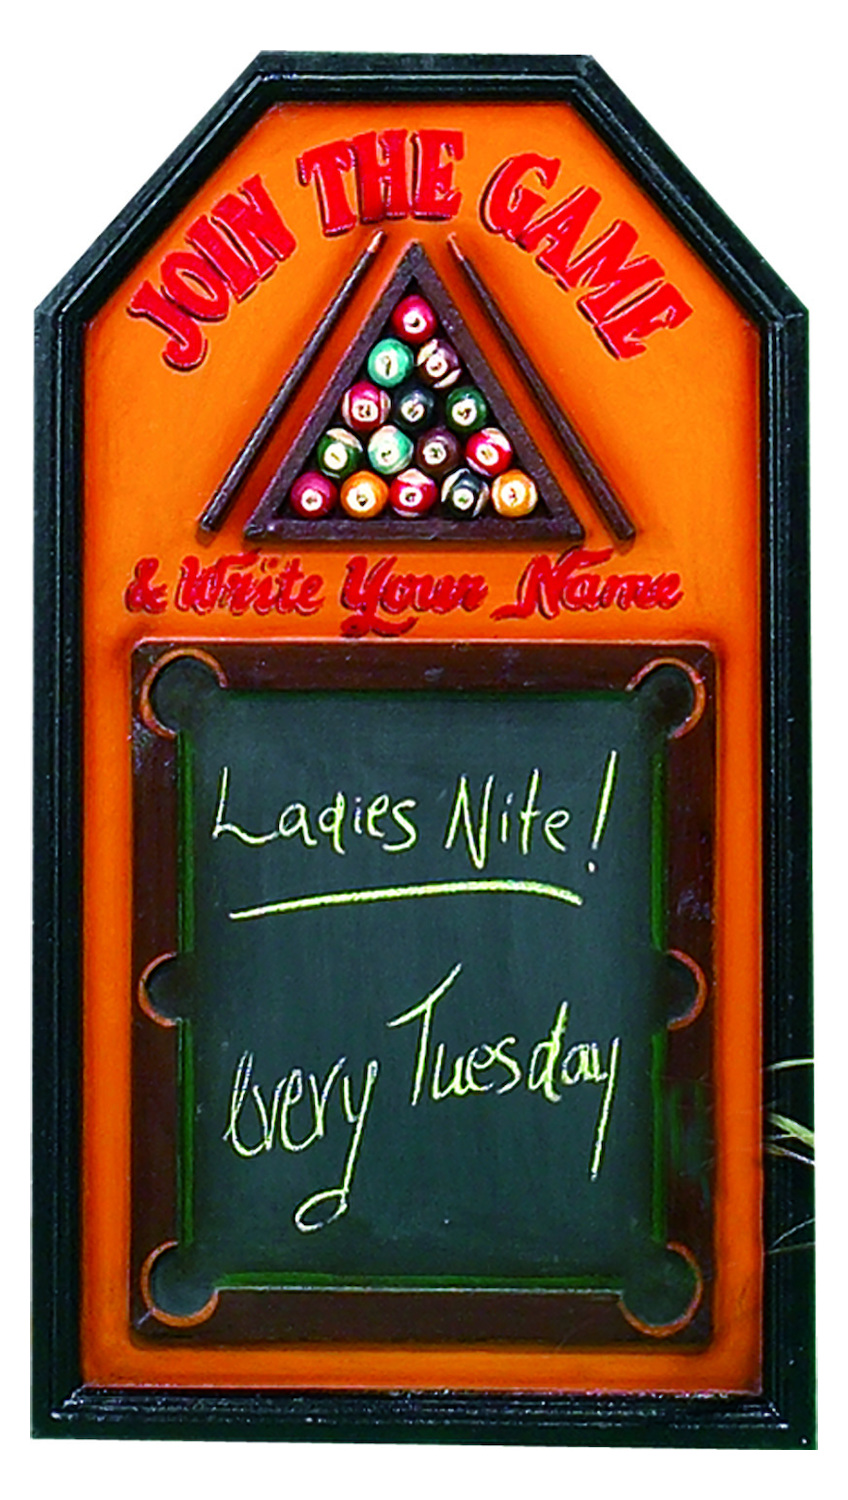 JOIN THE GAME
& Write Your Name
Ladies Nite!
every Tuesday